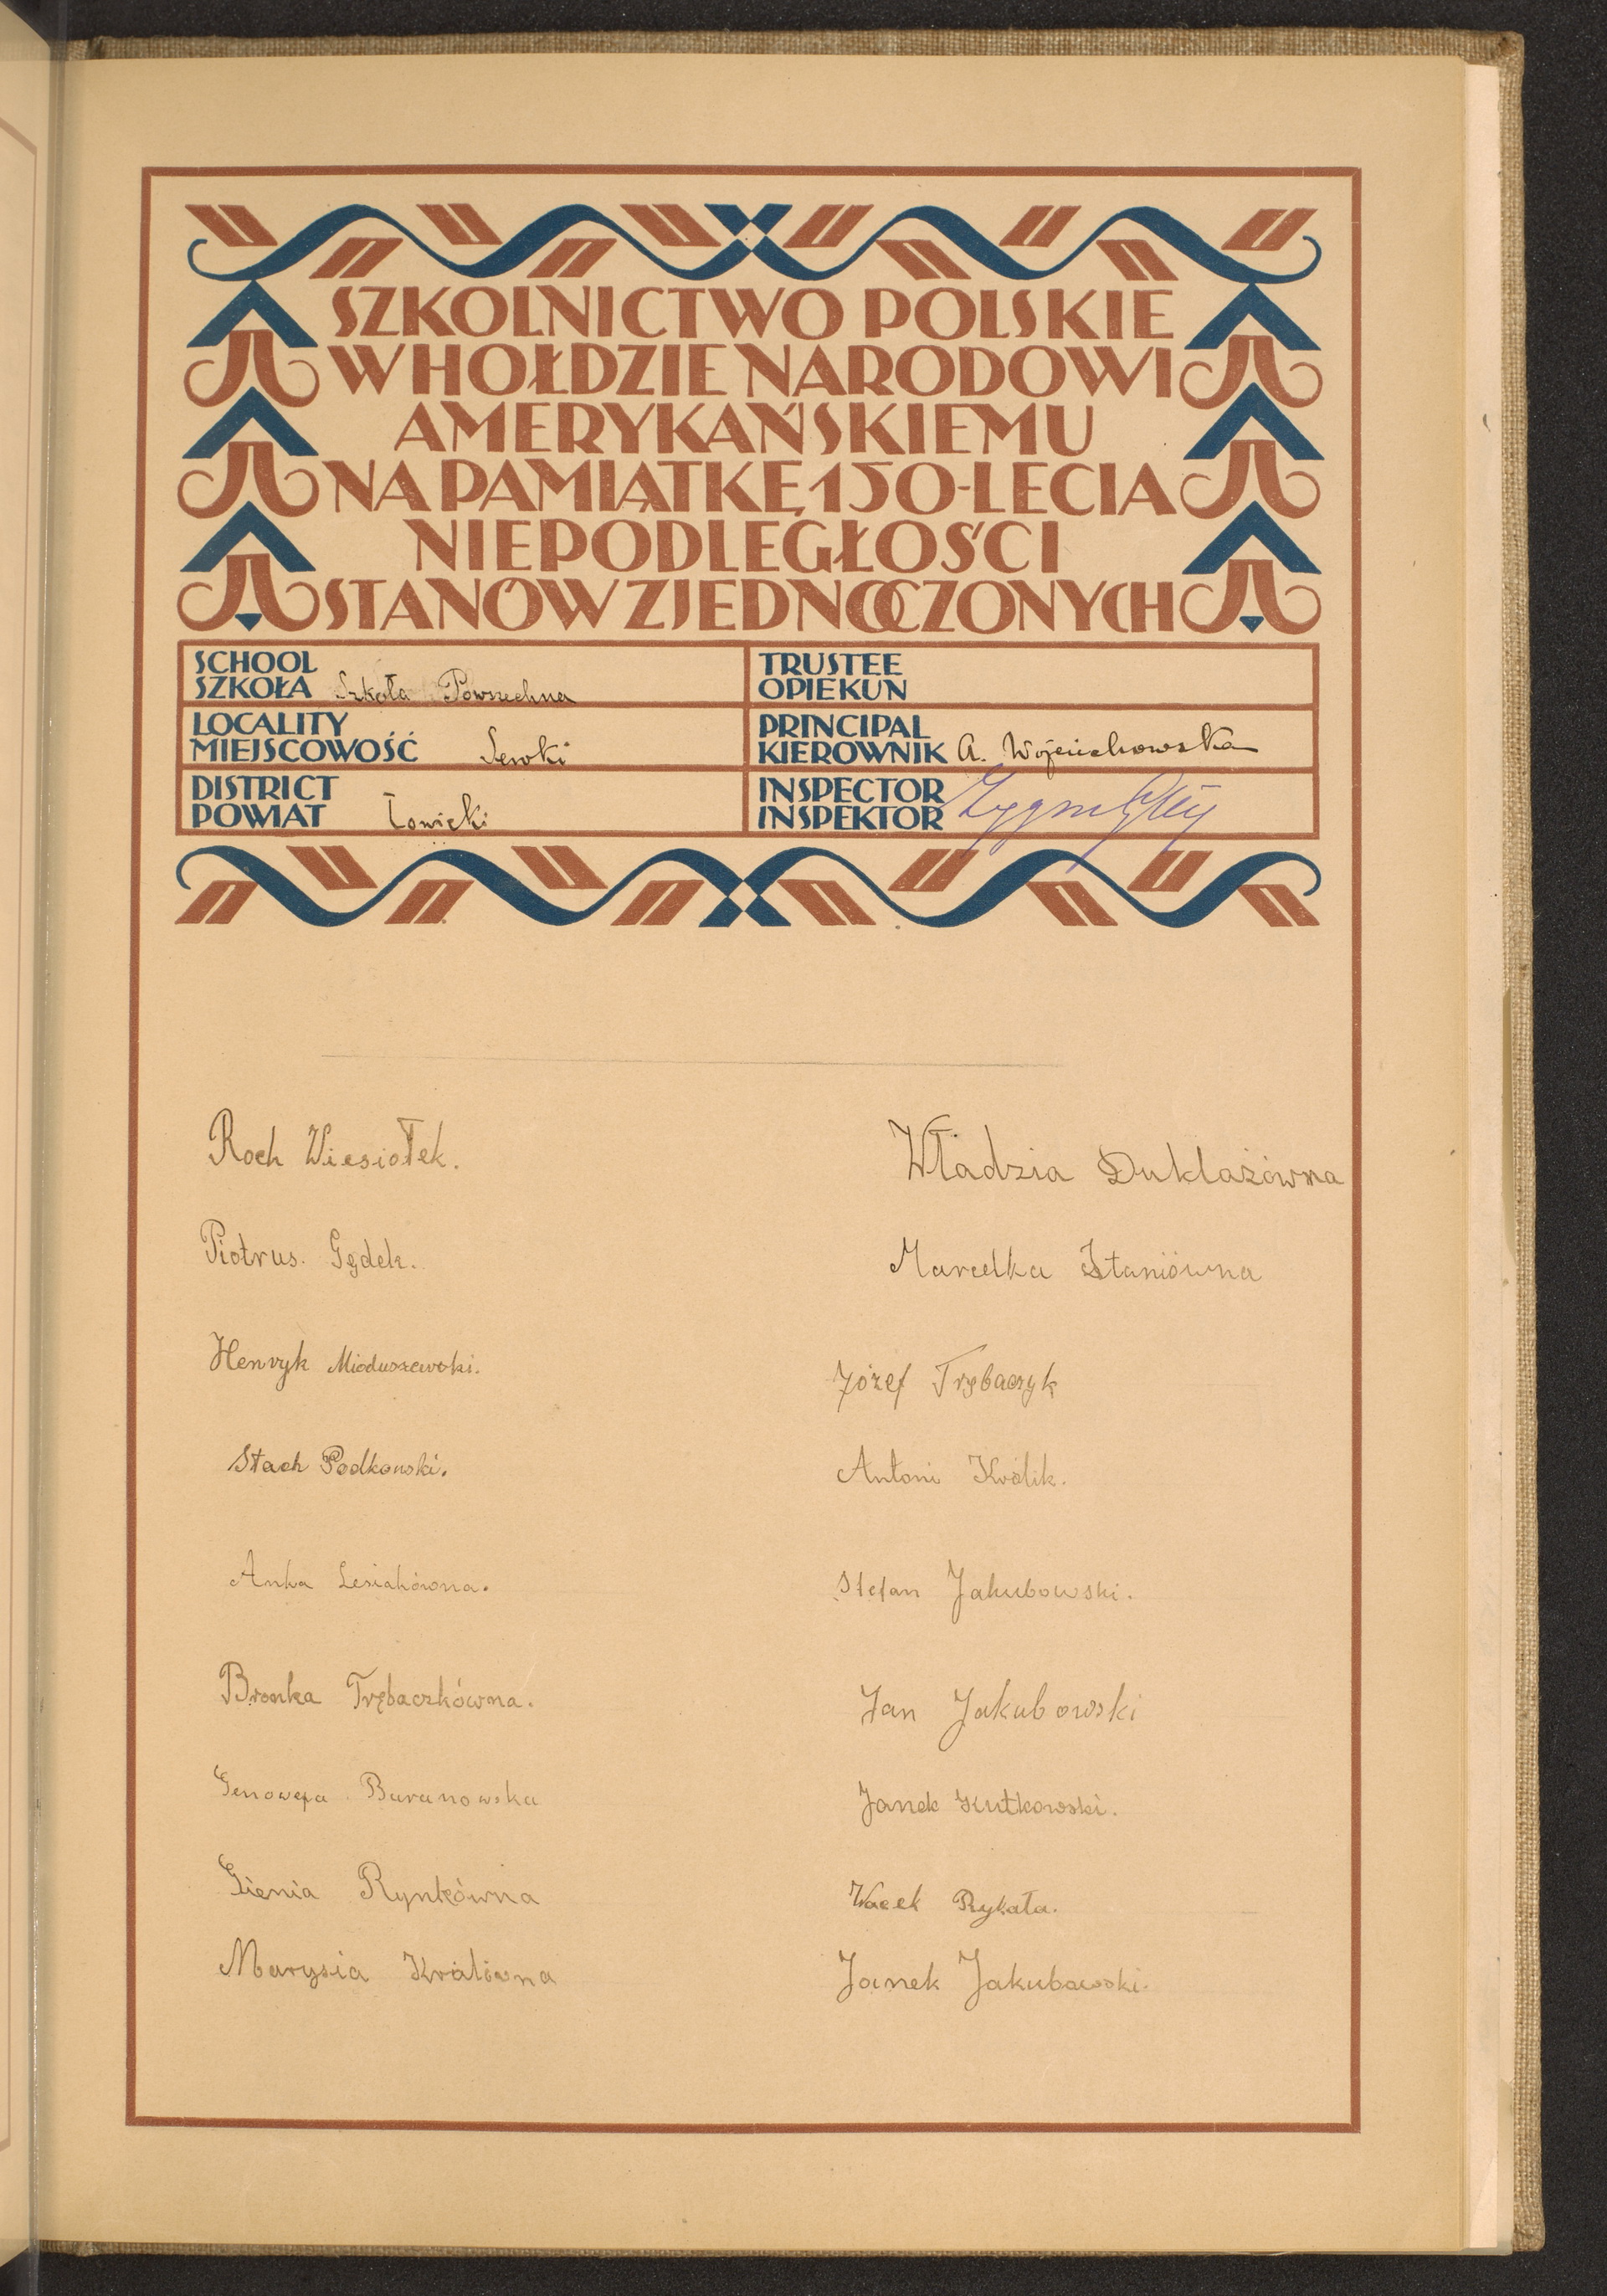 SZKOLNICTWO POLSKIE
W HOŁDZIE NARODOWI
AMERYKAŃSKIEMU
NA PAMIĄTKĘ 150-LECIA
NIEPODLEGŁOŚCI
STANÓW ZJEDNOCZONYCH
SCHOOL
SZKOŁA Szkoła Powszechna
TRUSTEE
OPIEKUN
LOCALITY
MIEJSCOWOŚĆ
PRINCIPAL
KIEROWNIK A. Wojciechowska
DISTRICT
POWIAT Łowicki
INSPECTOR
INSPEKTOR
Roch Wiesiołek.
Piotrus. Gędek.
Henryk Mioduszewski.
Stach Podkonski.
Anka Lesiakówna.
Bronka Trębaczkówna.
Genowefa Baranowska
Gienia Rynkówna
Marysia Królówna
Władzia Duklażówna
Marcelka Staniówna
Józef Trębaczyk
Antoni Królik.
Stefan Jakubowski.
Jan Jakubowski
Janek Kutkowski.
Wacek Rykała.
Janek Jakubowski.